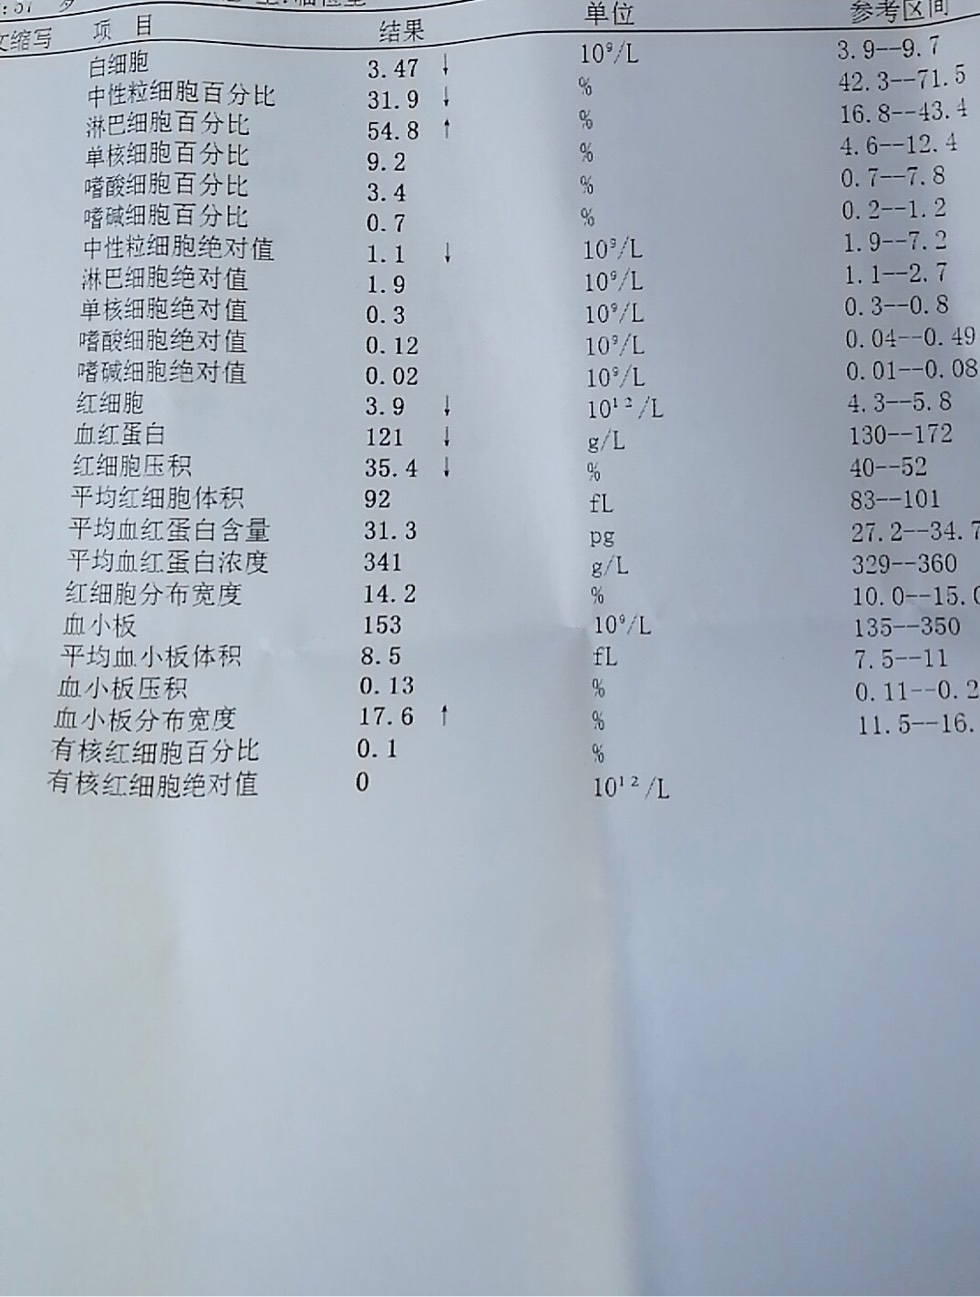 文缩写 项 目 结果 单位 参考区间
白细胞 3.47 ↓ 10⁹/L 3.9--9.7
中性粒细胞百分比 31.9 ↓ % 42.3--71.5
淋巴细胞百分比 54.8 ↑ % 16.8--43.4
单核细胞百分比 9.2 % 4.6--12.4
嗜酸细胞百分比 3.4 % 0.7--7.8
嗜碱细胞百分比 0.7 % 0.2--1.2
中性粒细胞绝对值 1.1 ↓ 10⁹/L 1.9--7.2
淋巴细胞绝对值 1.9 10⁹/L 1.1--2.7
单核细胞绝对值 0.3 10⁹/L 0.3--0.8
嗜酸细胞绝对值 0.12 10⁹/L 0.04--0.49
嗜碱细胞绝对值 0.02 10⁹/L 0.01--0.08
红细胞 3.9 ↓ 10¹²/L 4.3--5.8
血红蛋白 121 ↓ g/L 130--172
红细胞压积 35.4 ↓ % 40--52
平均红细胞体积 92 fL 83--101
平均血红蛋白含量 31.3 pg 27.2--34.7
平均血红蛋白浓度 341 g/L 329--360
红细胞分布宽度 14.2 % 10.0--15.0
血小板 153 10⁹/L 135--350
平均血小板体积 8.5 fL 7.5--11
血小板压积 0.13 % 0.11--0.2
血小板分布宽度 17.6 ↑ % 11.5--16.
有核红细胞百分比 0.1 %
有核红细胞绝对值 0 10¹²/L